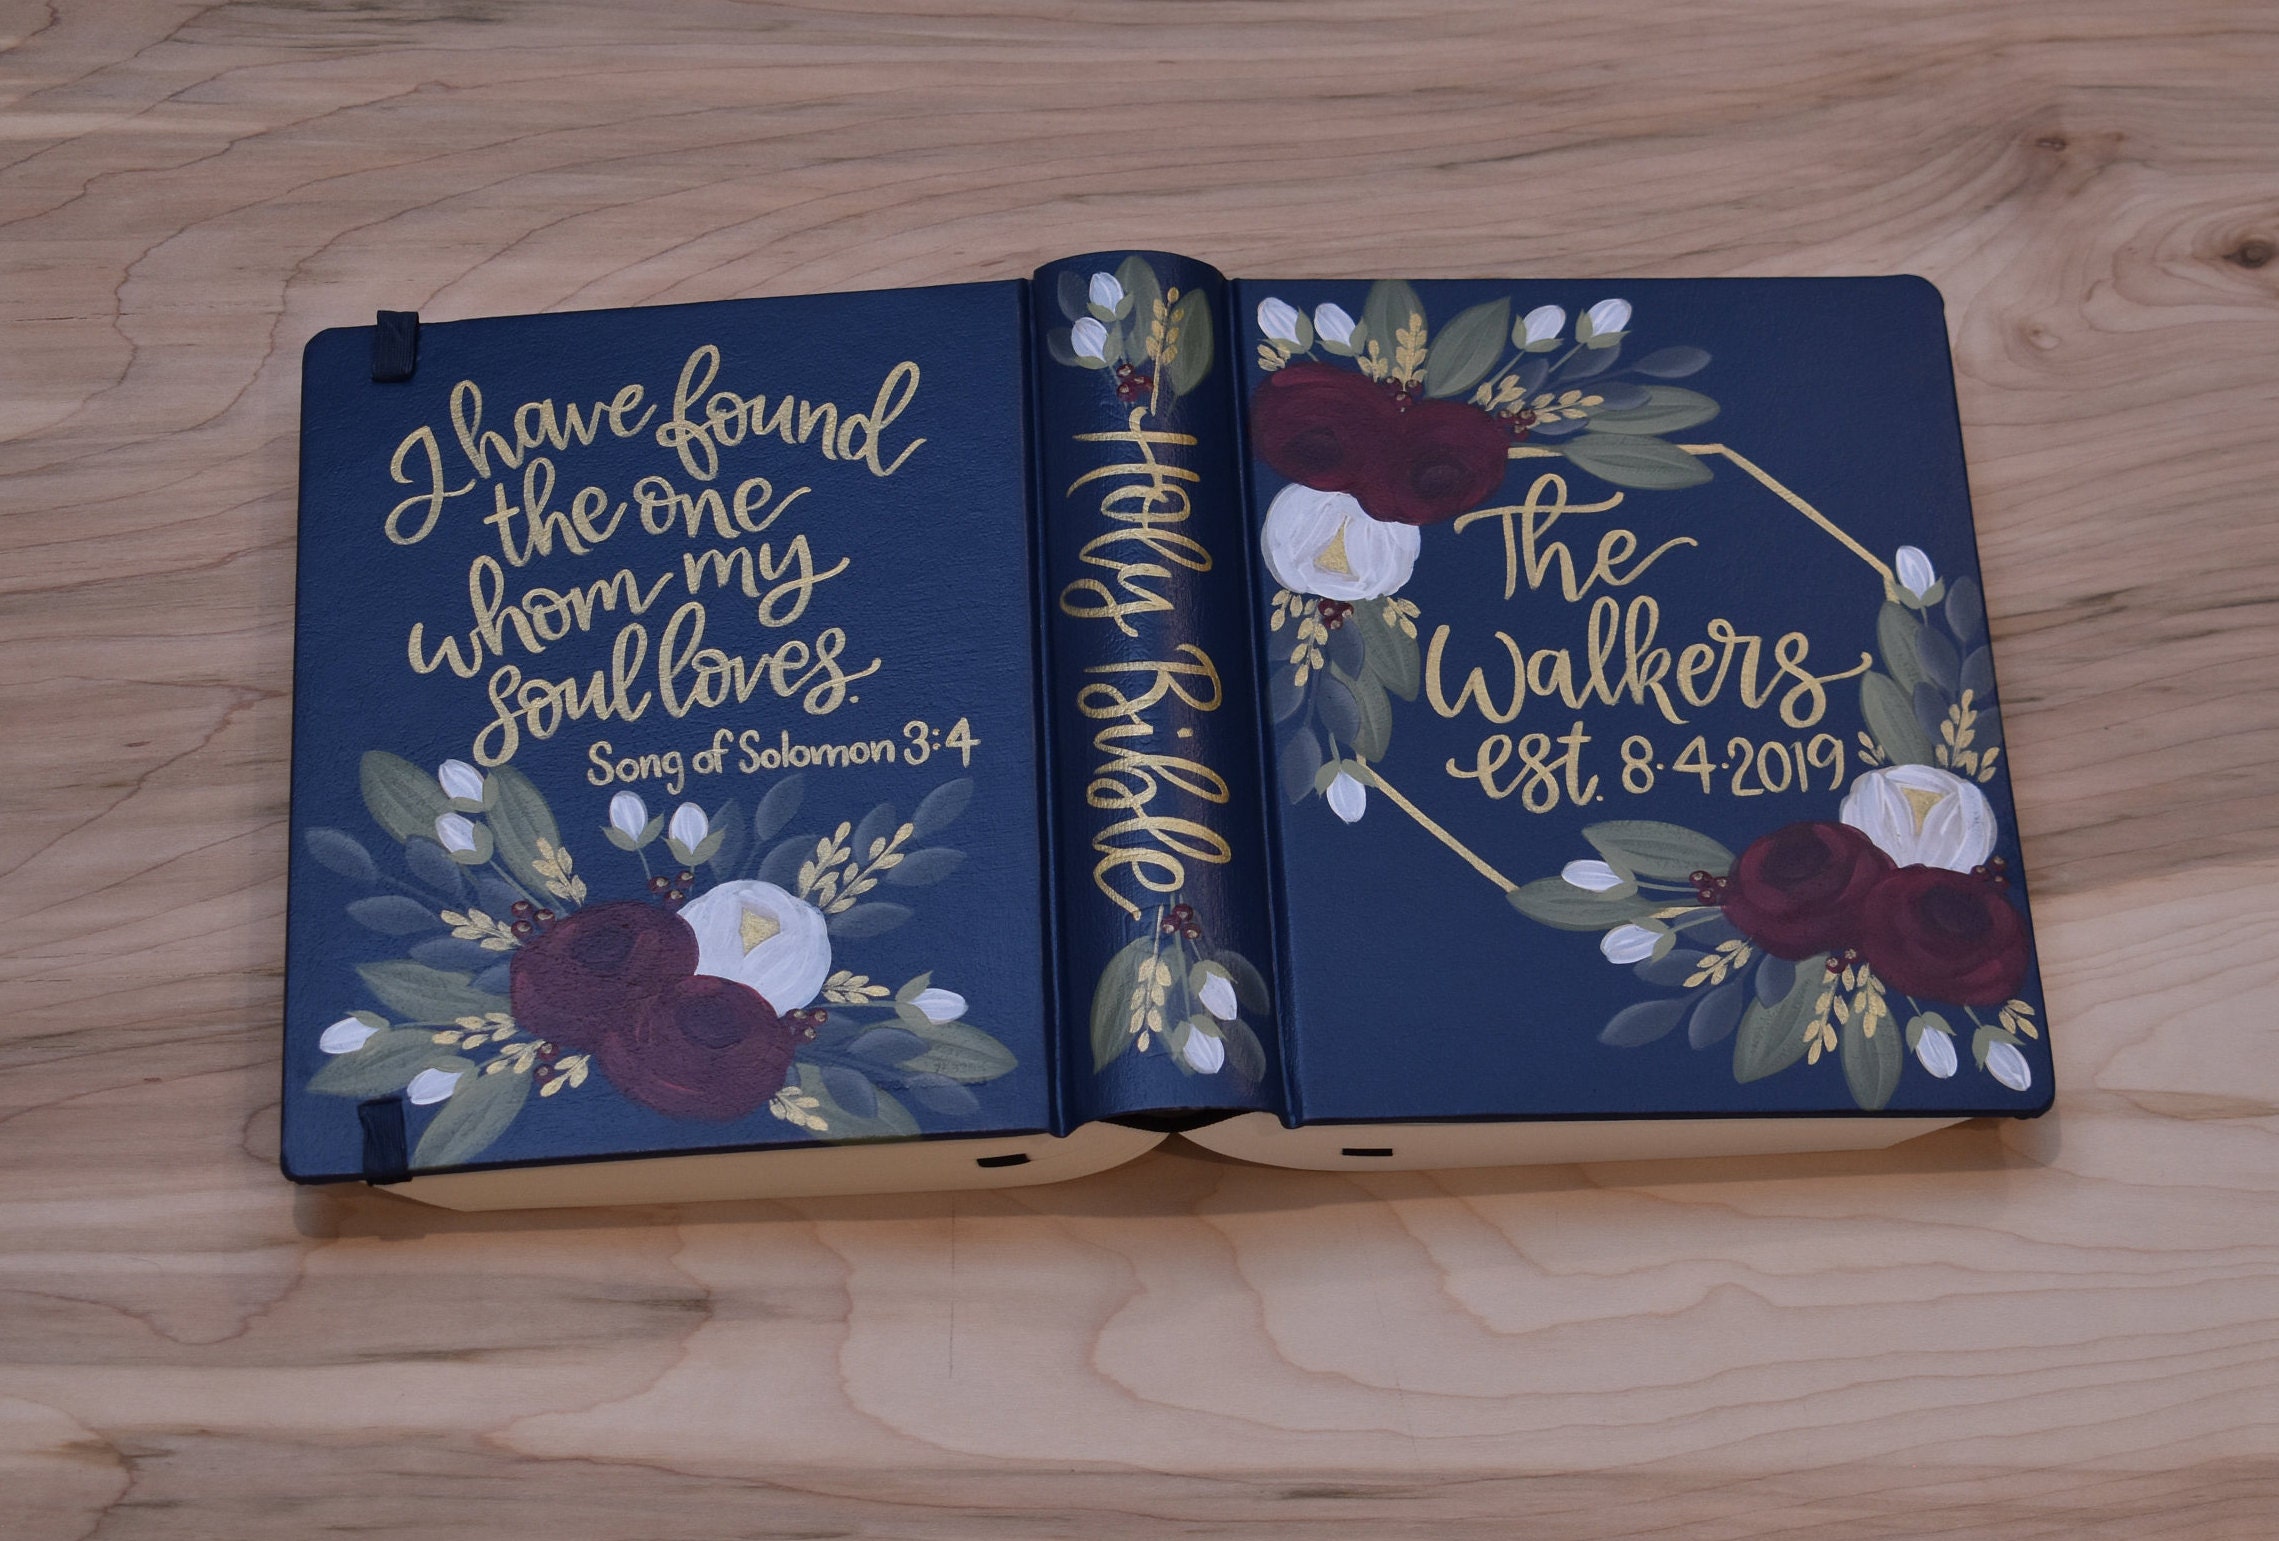 I have found
the one
whom my
soul loves.
Song of Solomon 3:4
Holy Bible
The
Walkers
est. 8·4·2019